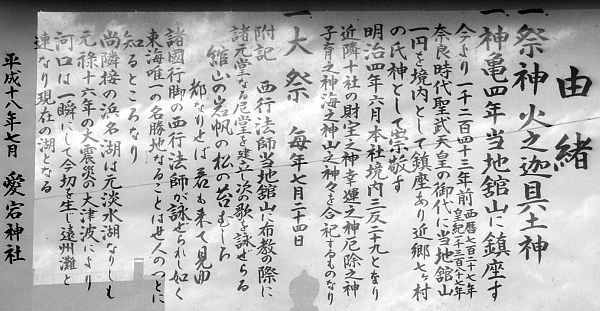 由緒
一祭神 火之迦具土神
一神亀四年当地舘山に鎮座す
今より一千二百四十三年前 西暦七百二十七年 皇紀一千三百八十七年
奈良時代聖武天皇の御代に当地舘山
一円を境内として鎮座あり近郷七ヶ村
の氏神として崇敬す
明治四年六月本社境内三反二十九となり
近隣十社の財宝之神幸運之神厄除之神
子育之神海之神山之神々を合祀するものなり
一大祭 毎年七月二十四日
附記 西行法師当地舘山に布教の際に
諸元堂なる尼堂を建立次の歌を詠ぜらる
舘山の岩帆の松の苔むしろ
都なりせば君も来て見ゆ
諸國行脚の西行法師が詠ぜられし如く
東海唯一の名勝地なることは世人のつとに
知るところなり
尚隣接の浜名湖は元淡水湖なりしも
元禄十六年の大震災の大津波により
河口は一瞬にして今切を生じ遠州灘と
連なり現在の湖となる
平成十八年七月 愛宕神社